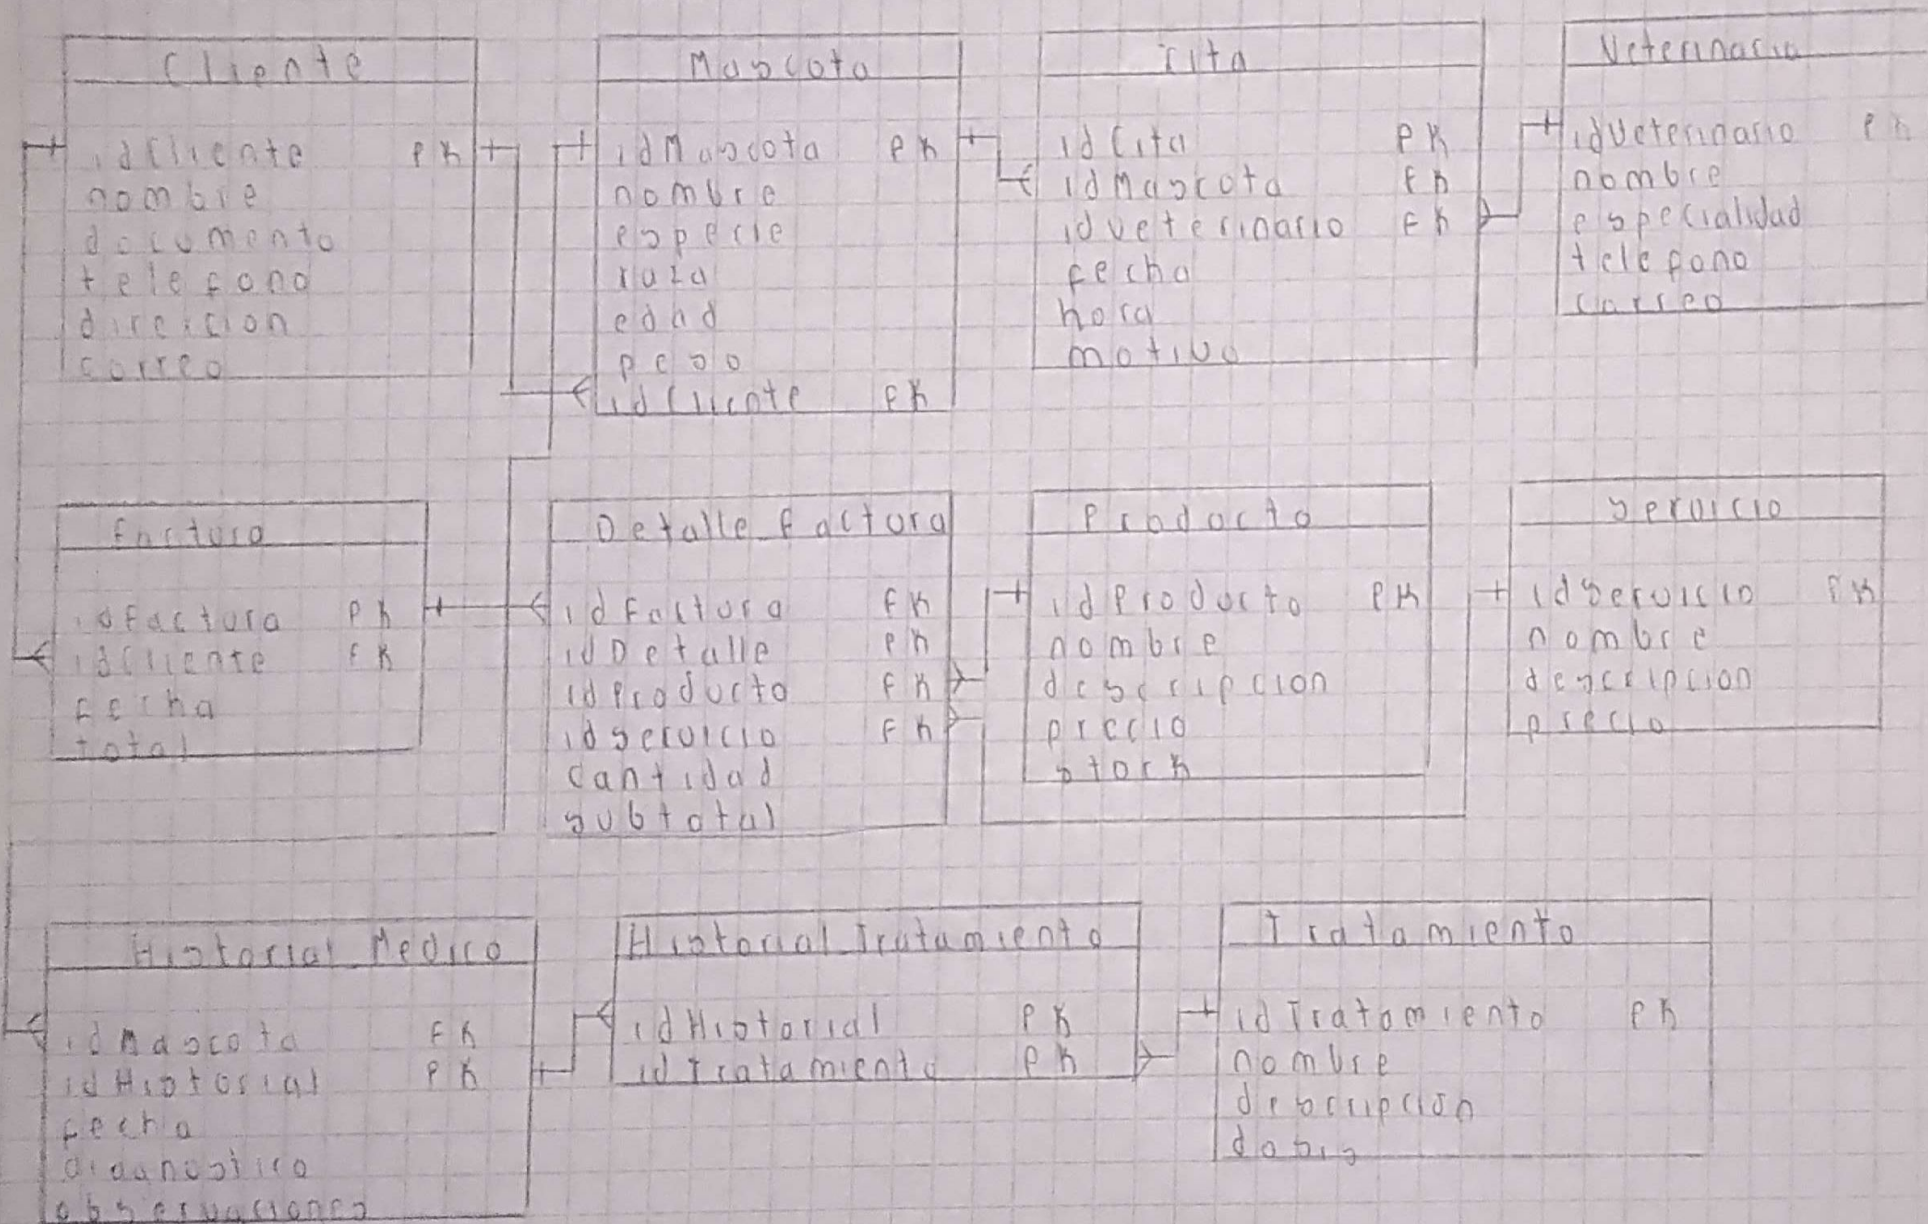 Cliente
idCliente PK
nombre
documento
telefono
direccion
correo
Mascota
idMascota PK
nombre
especie
raza
edad
peso
idCliente FK
Cita
idCita PK
idMascota FK
idVeterinario FK
fecha
hora
motivo
Veterinario
idVeterinario PK
nombre
especialidad
telefono
correo
Factura
idFactura PK
idCliente FK
fecha
total
Detalle_Factura
idFactura FK
idDetalle PK
idProducto FK
idServicio FK
Cantidad
subtotal
Producto
idProducto PK
nombre
descripcion
precio
stock
Servicio
idServicio PK
nombre
descripcion
precio
Historial Medico
idMascota FK
idHistorial PK
fecha
diagnostico
observaciones
Historial Tratamiento
idHistorial PK
idTratamiento PK
Tratamiento
idTratamiento PK
nombre
descripcion
dosis